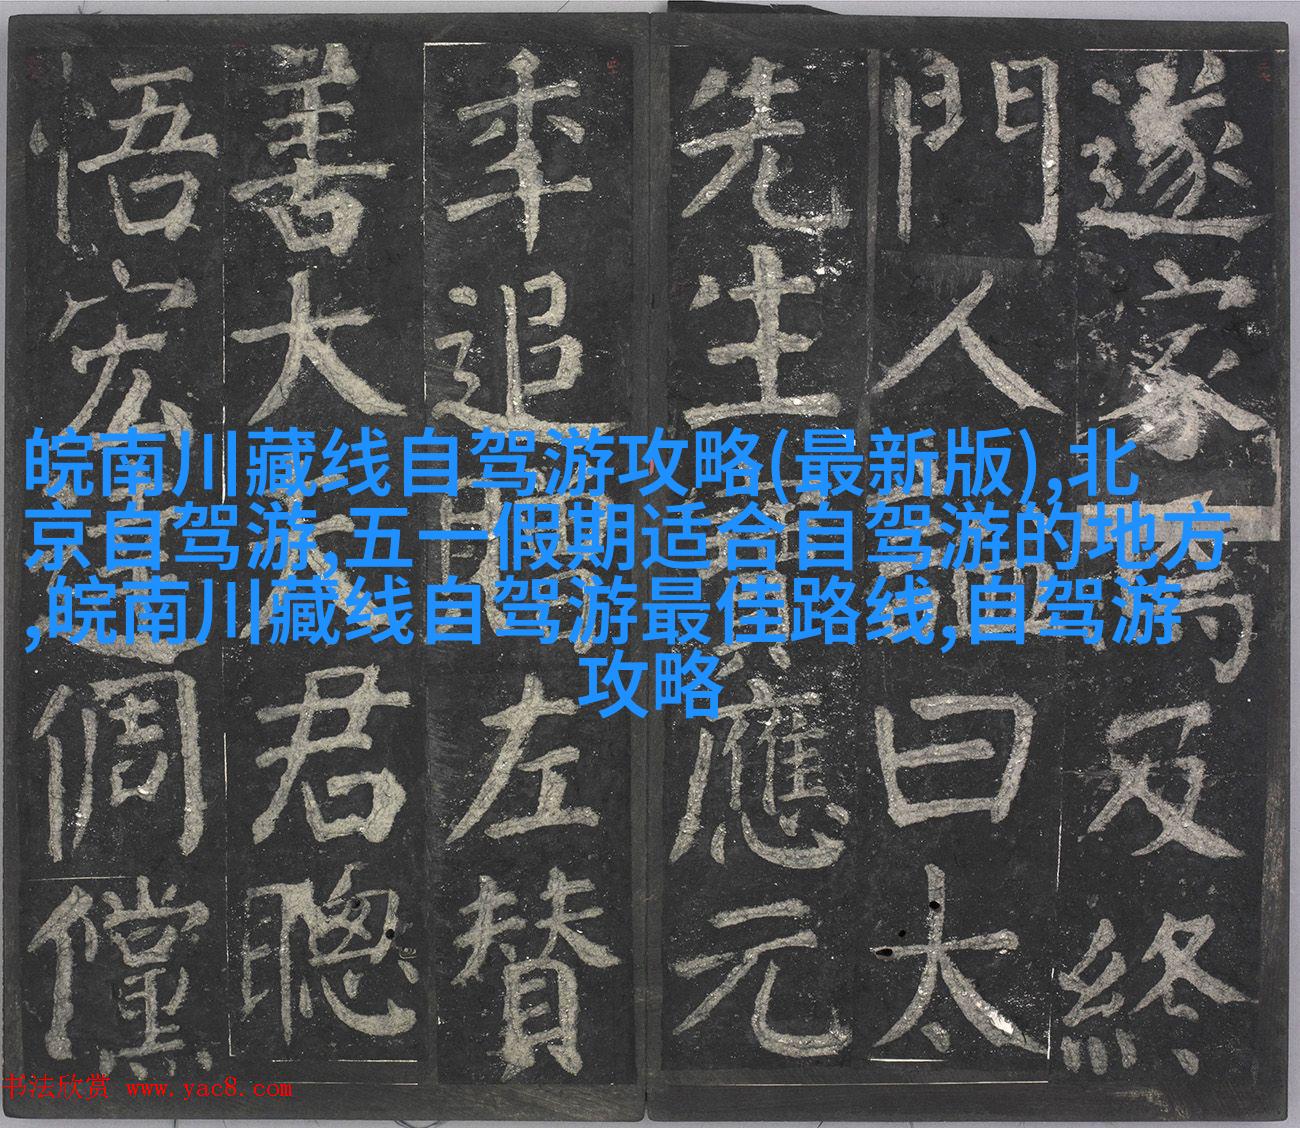 皖南川藏线自驾游攻略(最新版),北
京自驾游,五一假期适合自驾游的地方
,皖南川藏线自驾游最佳路线,自驾游
攻略
遂家焉及終
門人曰太
先生應元
年追左贊
善大夫君聰
悟宏達倜儻
书法欣赏 www.yac8.com